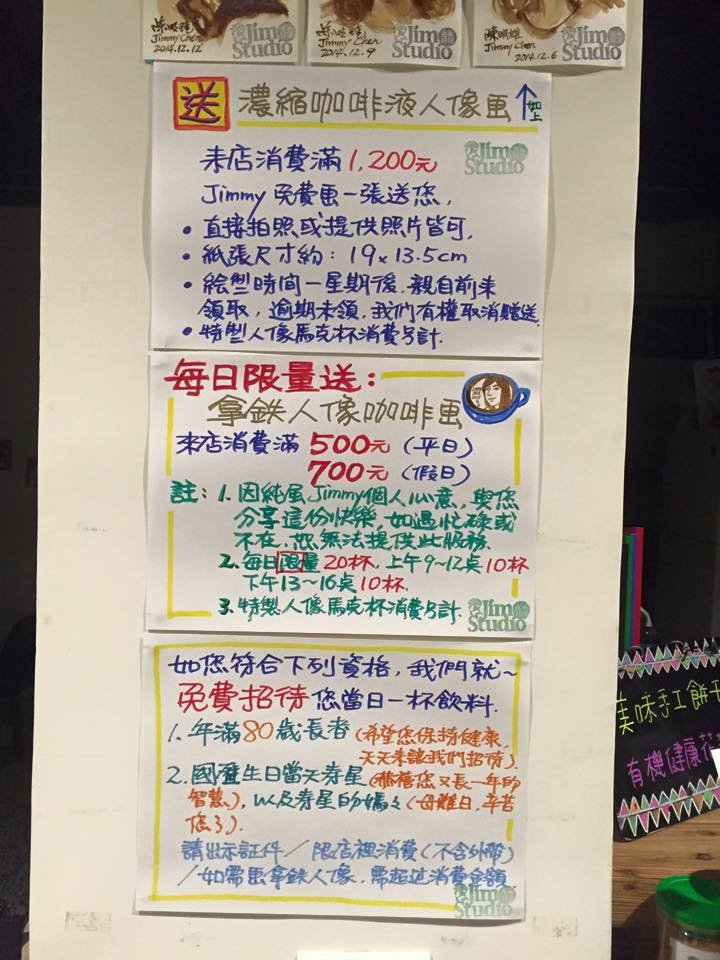 陳明雄 Jimmy Chen 2014.12.12 Jim Studio
陳明雄 Jimmy Chen 2014.12.9 Jim Studio
陳明雄 Jimmy Chen 2014.12.6 Jim Studio
送 濃縮咖啡液人像畫 ↑如上
來店消費滿 1,200元 Jim Studio
Jimmy 免費畫一張送您,
• 直接拍照或提供照片皆可,
• 紙張尺寸約: 19 x 13.5cm
• 繪製時間一星期後, 親自前來
領取, 逾期未領, 我們有權取消贈送.
• 特製人像馬克杯消費另計.
每日限量送:
拿鉄人像咖啡畫
來店消費滿 500元 (平日)
700元 (假日)
註: 1. 因純屬Jimmy個人心意, 與您
分享這份快樂, 如遇忙碌或
不在, 恕無法提供此服務.
2. 每日限量 20杯, 上午9~12點 10杯
下午13~16點 10杯.
3. 特製人像馬克杯消費另計. Jim Studio
如您符合下列資格, 我們就~
免費招待 您當日一杯飲料.
1. 年滿80歲長者 (希望您保持健康,
天天來讓我們招待).
2. 國曆生日當天壽星 (恭禧您又長一年的
智慧), 以及壽星的媽々 (母難日, 辛苦
您了).
請出示証件 / 限店裡消費 (不含外帶)
/ 如需畫拿鉄人像, 需超过消費金額
Jim Studio
美味手工餅干
有機健康花